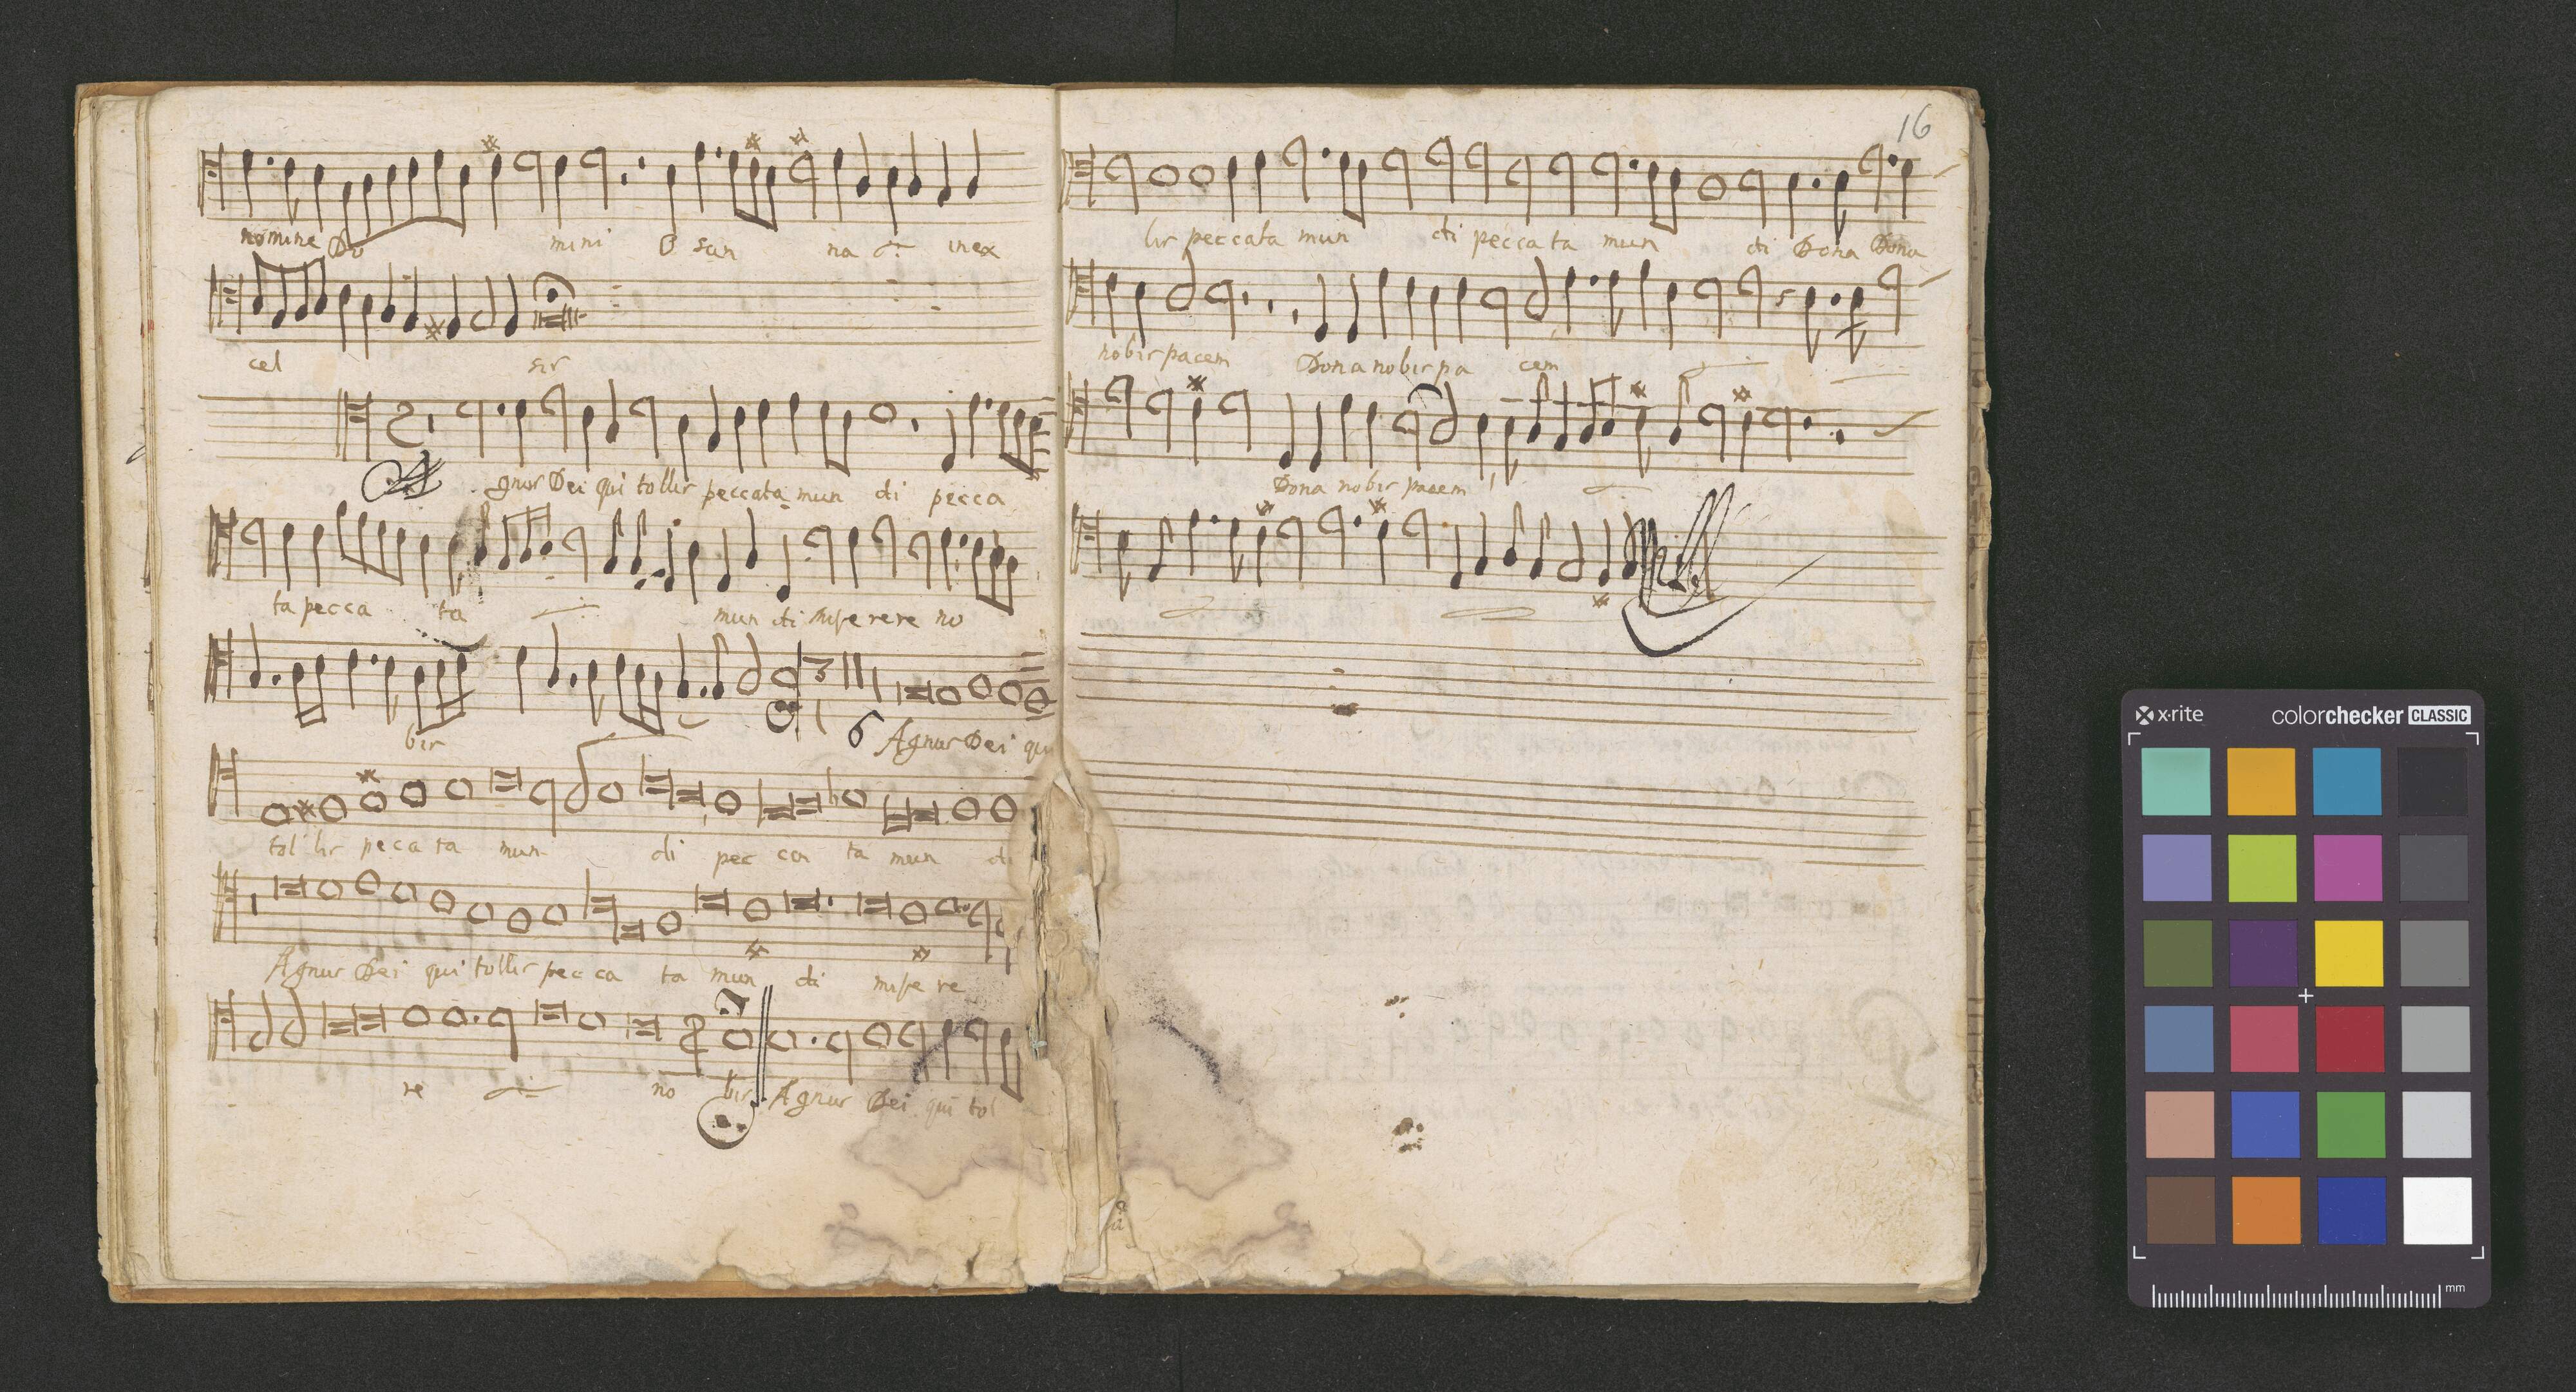 nomine Do mini O san na inex
cel sis
Agnus Dei qui tollis peccata mun di pecca
ta pecca ta mun di mise rere no
bis 3 6 Agnus Dei qui
tol lis peca ta mun di pec ca ta mun di
Agnus Dei qui tollis pec ca ta mun di mise re
re no bis Agnus Dei qui tol
16
lis peccata mun di pecca ta mun di Dona Dona
nobis pacem Dona nobis pa cem
Dona nobis pacem
x-rite colorchecker CLASSIC
mm